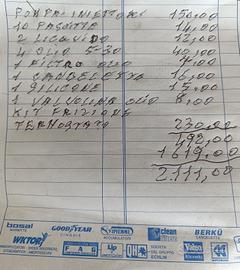 POMPA INIETTORI 150,00
10 PASOTTO 14,00
2 LIQUIDO 12,00
4 OLIO 5-30 40,00
1 FILTRO OLIO 7,00
1 CANDELETTA 16,00
1 SILICONE 15,00
1 VALVOLINA OLIO 8,00
KIT FRIZIONE
TERMOSTATO 230,00
492,00
1619,00
2.111,00
bosal
GOODYEAR
VIPIEMME
clean
BERKÜ
WIKTORY
FAG
Up
OK
Valeo